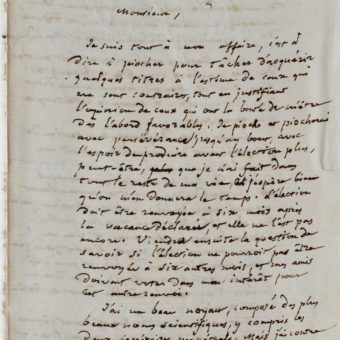 Monsieur,
Je suis tout à mon affaire, c'est à
dire à piocher pour tâcher d'acquérir
quelques titres à l'estime de ceux qui
me sont contraires, tout en justifiant
l'opinion de ceux qui ont la bonté de m'être
dès l'abord favorables. Je pioche et piocherai
avec persévérance jusqu'au bout, avec
l'espoir de produire avant l'élection plus,
peut-être, que je n'ai fait dans
tout le reste de ma vie et j'espère bien
qu'on m'en donnera le temps. L'élection
doit être renvoyée à six mois après
la vacance déclarée, et elle ne l'est pas
encore. Viendra ensuite la question de
savoir si l'élection ne pourroit pas être
renvoyée à six autres mois, et mes amis
doivent voter dans mon intérêt pour
cet autre renvoi.
J'ai un beau noyau, composé des plus
beaux noms scientifiques, y compris les
deux perpétuels. Mais j'ai contre